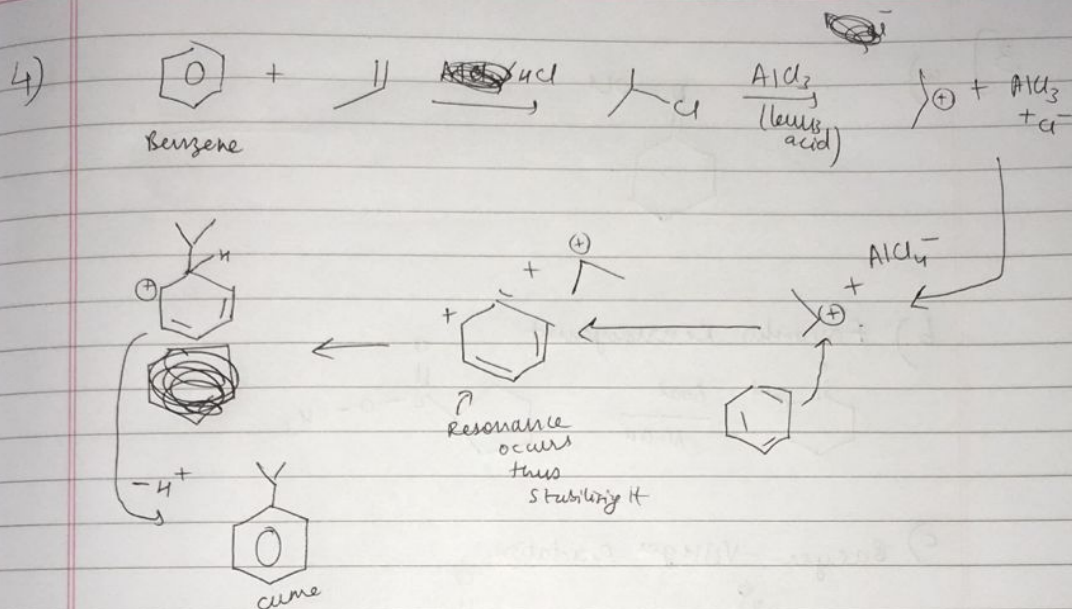 4)
+
HCl
Cl
AlCl3
(lewis
acid)
⊕ + AlCl3
+ Cl⁻
Benzene
H
⊕
⊕
+
+
AlCl4⁻
+
⊕
Resonance
occurs
thus
Stabilizing it
-H⁺
cume